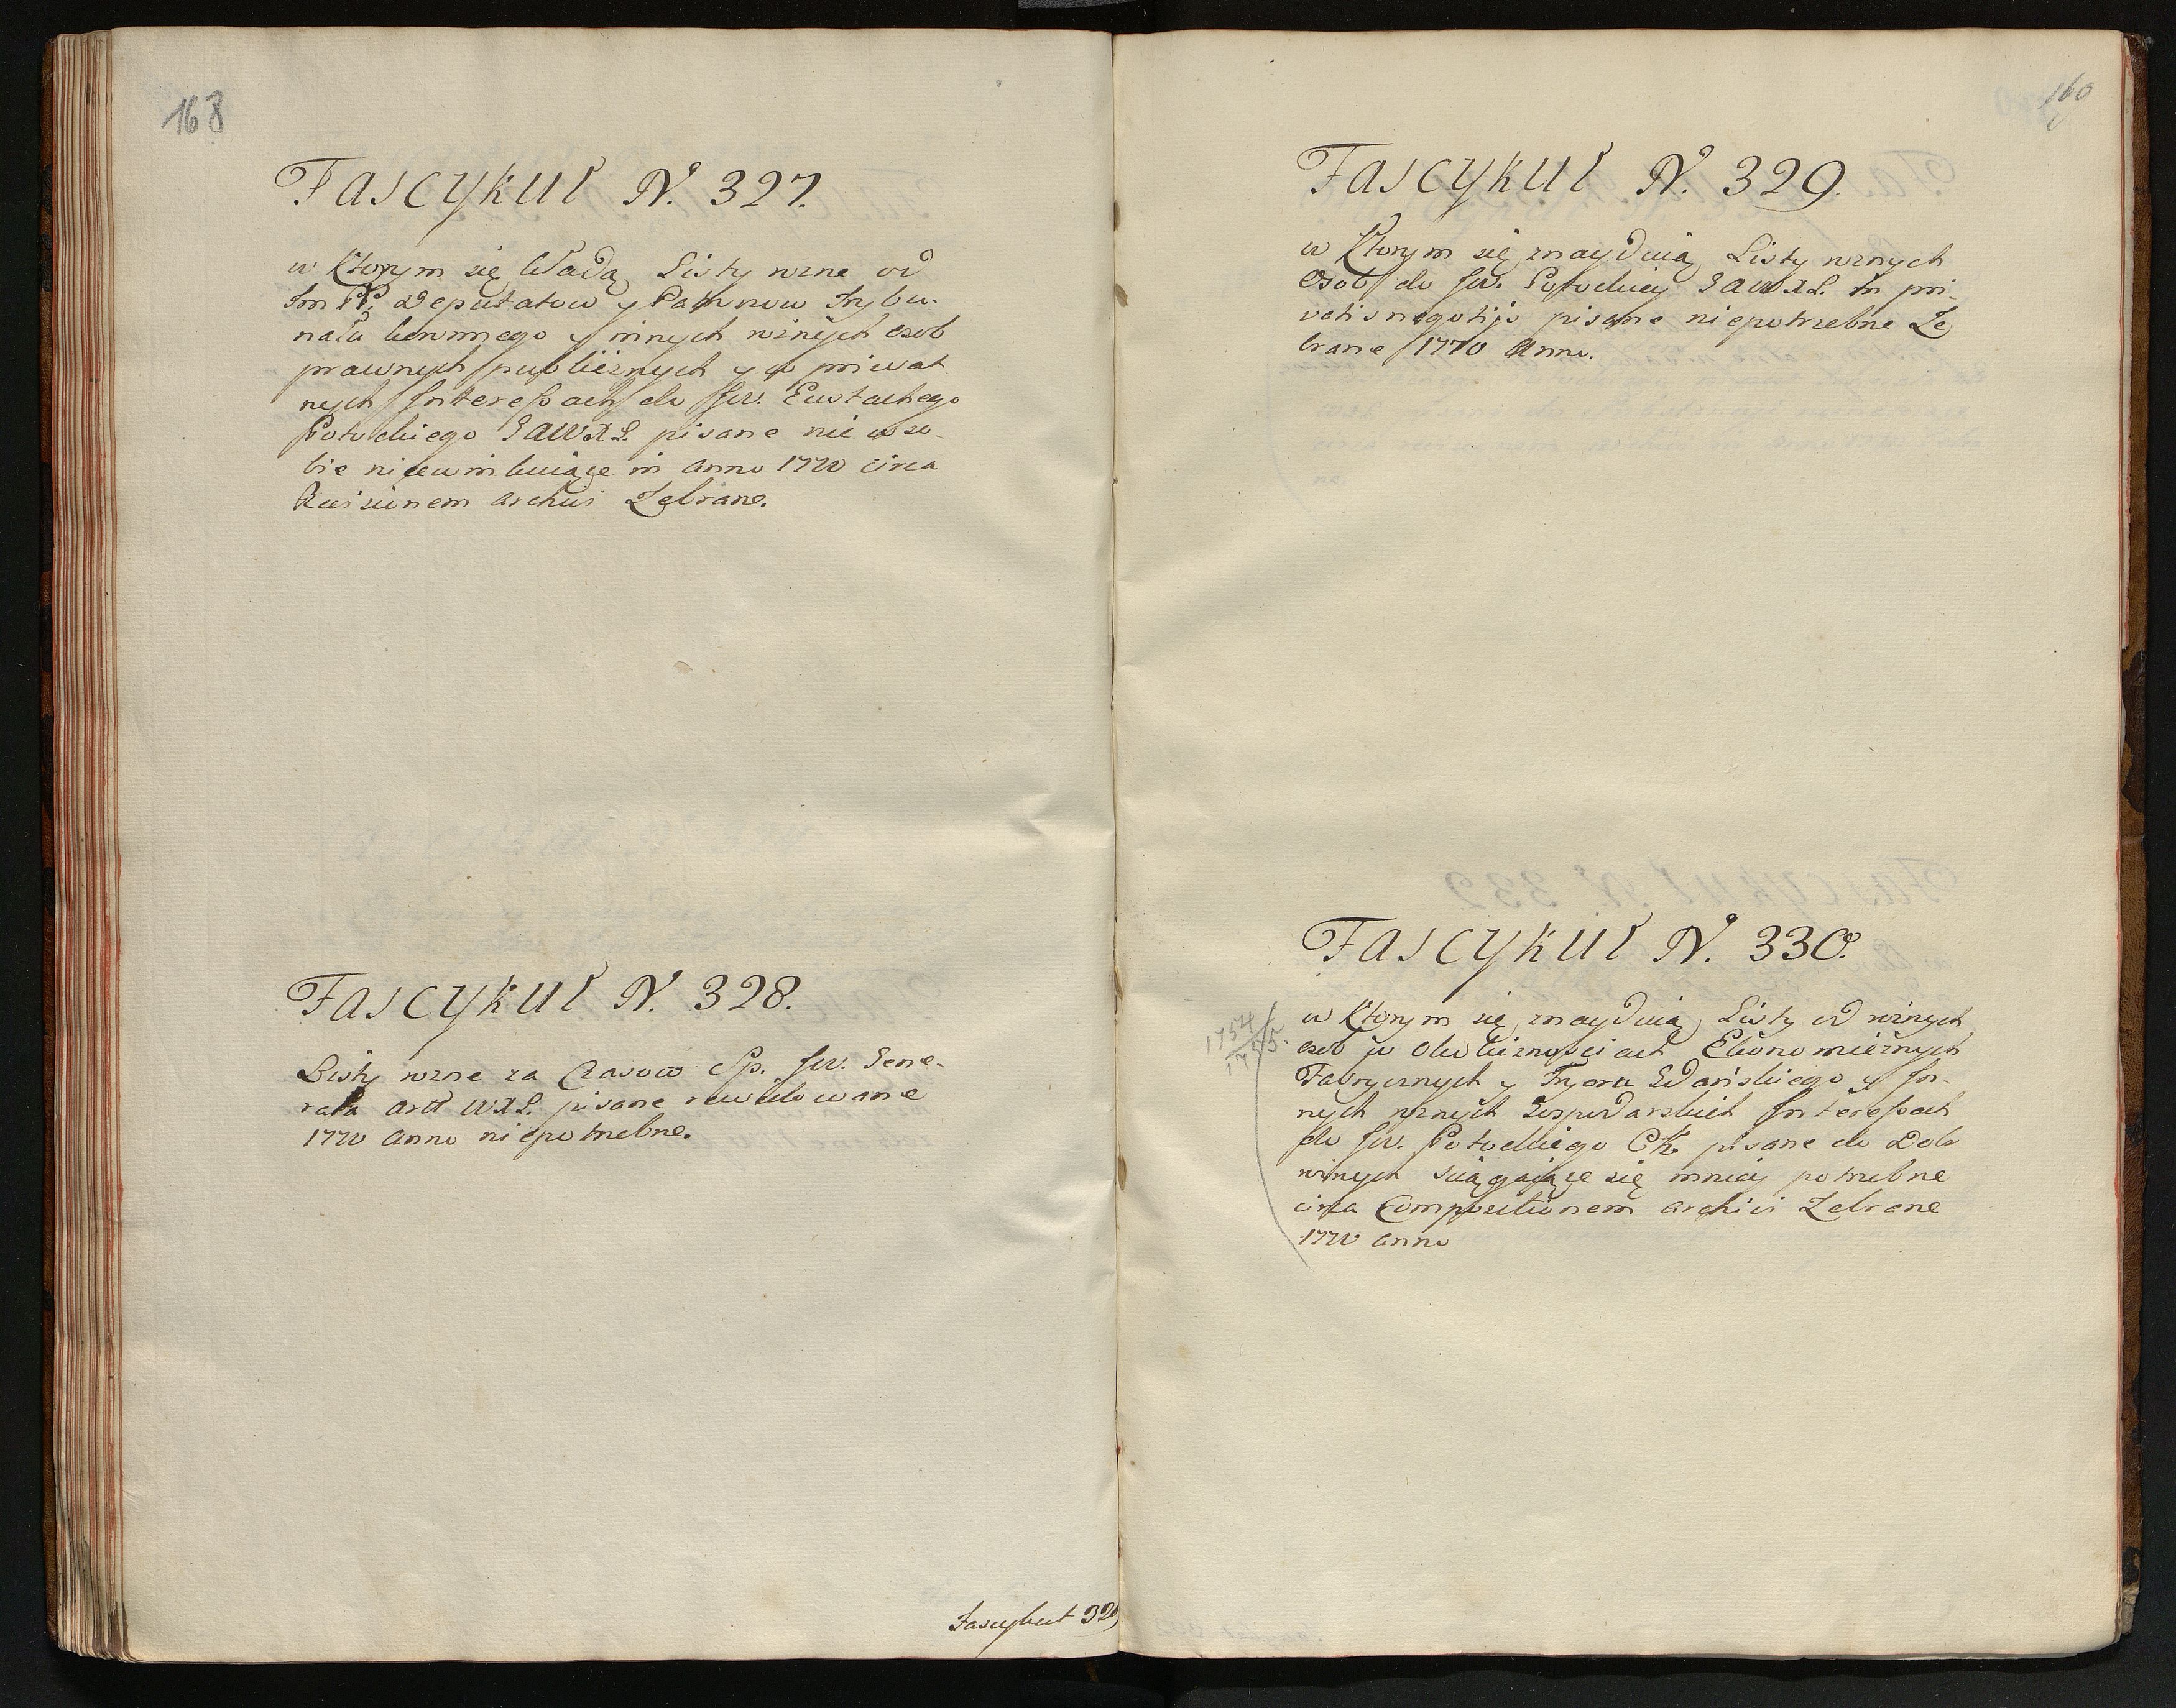 168
Fascykuł N. 327.
w ktorym się kładą Listy rozne od
Im PP. Deputatow y Patronow Trybu-
nału koronnego y innych roznych osob
prawnych publicznych y w priwat
nych Interessach do Jw. Eustachego
Potockiego GAWXL. pisane nic w so-
bie in Anno 1770 circa
Revisionem Archivi Zebrane.
Fascykuł N. 328.
Listy rozne za Czasow Sp. Jw. Gene-
rała Artt WXL. pisane rewidowane
1770 Anno niepotrzebne.
Fascykuł 329
169
Fascykuł N. 329.
w ktorym się znayduią Listy roznych
Osob do Jw. Potockiey GAWXL. in pri-
vatis negotijs pisane niepotrzebne Ze
brane 1770 Anno.
Fascykuł N. 330.
1754
1755.
w ktorym się znayduią Listy od roznych
osob w okolicznosciach Ekonomicznych
Fabrycznych y Fryoru Gdańskiego y In-
nych roznych Gospodarskich Interessach
do Jw. Potockiego pisane do Dobr
roznych sciągaiące się mniey potrzebne
circa Compositionem Archivi Zebrane
1770 Anno